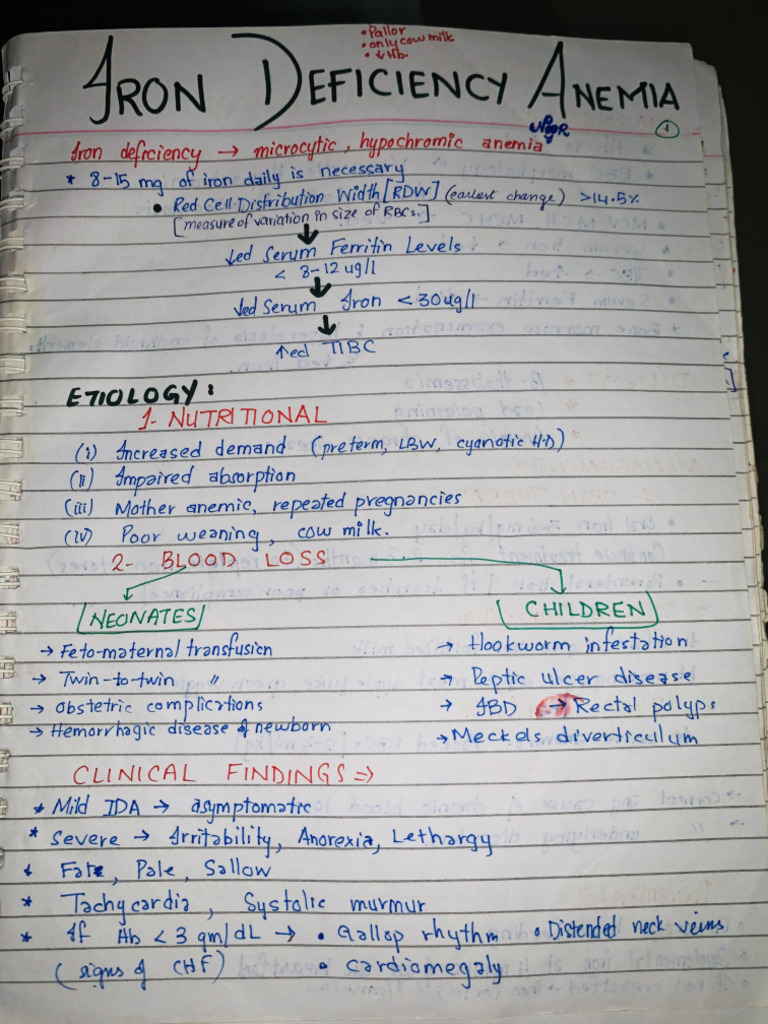 • Pallor
• only cow milk
• ↓ Hb.
IRON DEFICIENCY ANEMIA
1
Iron deficiency → microcytic, hypochromic anemia
* 8-15 mg of iron daily is necessary
• Red Cell Distribution Width [RDW] (earliest change) >14.5%
[measure of variation in size of RBCs.]
↓ed Serum Ferritin Levels
< 8-12 ug/l
↓ed Serum Iron < 30 ug/l
↑ed TIBC
ETIOLOGY:
1- NUTRITIONAL
(i) Increased demand (preterm, LBW, cyanotic H.D)
(ii) Impaired absorption
(iii) Mother anemic, repeated pregnancies
(iv) Poor weaning, cow milk.
2- BLOOD LOSS
NEONATES
→ Feto-maternal transfusion
→ Twin-to-twin "
→ Obstetric complications
→ Hemorrhagic disease of newborn
CHILDREN
→ Hookworm infestation
→ Peptic ulcer disease
→ IBD → Rectal polyps
→ Meckels diverticulum
CLINICAL FINDINGS ⇒
* Mild IDA → asymptomatic
* Severe → Irritability, Anorexia, Lethargy
* Fat, Pale, Sallow
* Tachycardia, Systolic murmur
* If Hb < 3 gm/dL → • Gallop rhythm • Distended neck veins
(signs of CHF) • cardiomegaly